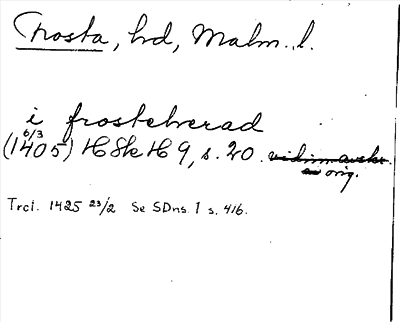 Frosta, hd, Malm. l.
i frosteherad
6/3
(1405) HSkH 9, s. 20. vidim. avskr.
av orig.
Trcl. 1425 23/2 Se SDns 1 s. 416.